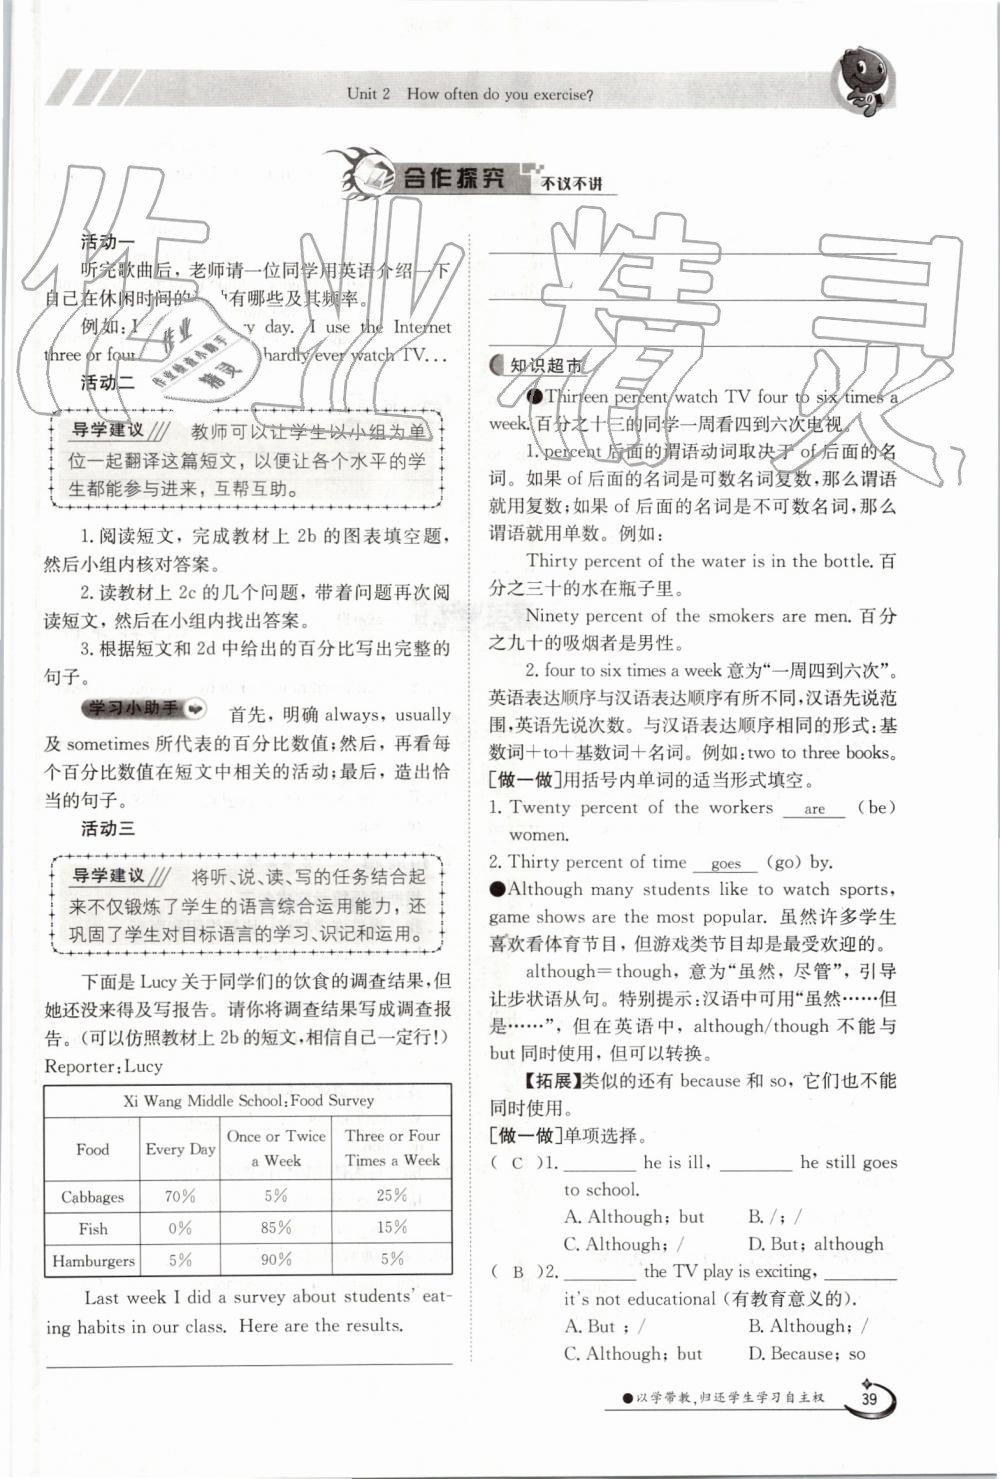 Unit 2 How often do you exercise?
合作探究 不议不讲
活动一
听完歌曲后，老师请一位同学用英语介绍一下
自己在休闲时间的 有哪些及其频率。
例如:I y day. I use the Internet
three or four hardly ever watch TV...
活动二
导学建议 教师可以让学生以小组为单
位一起翻译这篇短文，以便让各个水平的学
生都能参与进来，互帮互助。
1.阅读短文，完成教材上 2b 的图表填空题，
然后小组内核对答案。
2.读教材上 2c 的几个问题，带着问题再次阅
读短文，然后在小组内找出答案。
3.根据短文和 2d 中给出的百分比写出完整的
句子。
学习小助手 首先，明确 always，usually
及 sometimes 所代表的百分比数值;然后，再看每
个百分比数值在短文中相关的活动;最后，造出恰
当的句子。
活动三
导学建议 将听、说、读、写的任务结合起
来不仅锻炼了学生的语言综合运用能力，还
巩固了学生对目标语言的学习、识记和运用。
下面是 Lucy 关于同学们的饮食的调查结果,但
她还没来得及写报告。请你将调查结果写成调查报
告。(可以仿照教材上 2b 的短文,相信自己一定行!)
Reporter:Lucy
Xi Wang Middle School:Food Survey
Food Every Day Once or Twice a Week Three or Four Times a Week
Cabbages 70% 5% 25%
Fish 0% 85% 15%
Hamburgers 5% 90% 5%
Last week I did a survey about students' eat-
ing habits in our class. Here are the results.
知识超市
●Thirteen percent watch TV four to six times a
week.百分之十三的同学一周看四到六次电视。
1.percent 后面的谓语动词取决于 of 后面的名
词。如果 of 后面的名词是可数名词复数,那么谓语
就用复数;如果 of 后面的名词是不可数名词,那么
谓语就用单数。例如:
Thirty percent of the water is in the bottle.百
分之三十的水在瓶子里。
Ninety percent of the smokers are men.百分
之九十的吸烟者是男性。
2.four to six times a week 意为“一周四到六次”。
英语表达顺序与汉语表达顺序有所不同,汉语先说范
围,英语先说次数。与汉语表达顺序相同的形式:基
数词+to+基数词+名词。例如:two to three books。
[做一做]用括号内单词的适当形式填空。
1. Twenty percent of the workers are (be)
women.
2. Thirty percent of time goes (go) by.
●Although many students like to watch sports,
game shows are the most popular. 虽然许多学生
喜欢看体育节目，但游戏类节目却是最受欢迎的。
although=though，意为“虽然，尽管”，引导
让步状语从句。特别提示:汉语中可用“虽然……但
是……”，但在英语中，although/though 不能与
but 同时使用，但可以转换。
【拓展】类似的还有 because 和 so，它们也不能
同时使用。
[做一做]单项选择。
( C )1. ________ he is ill, ________ he still goes
to school.
A. Although; but B. /; /
C. Although; / D. But; although
( B )2. ________ the TV play is exciting, ________
it's not educational (有教育意义的).
A. But ; / B. Although; /
C. Although; but D. Because; so
●以学带教,归还学生学习自主权 39
作业精灵
作业
作业检查小助手
精灵